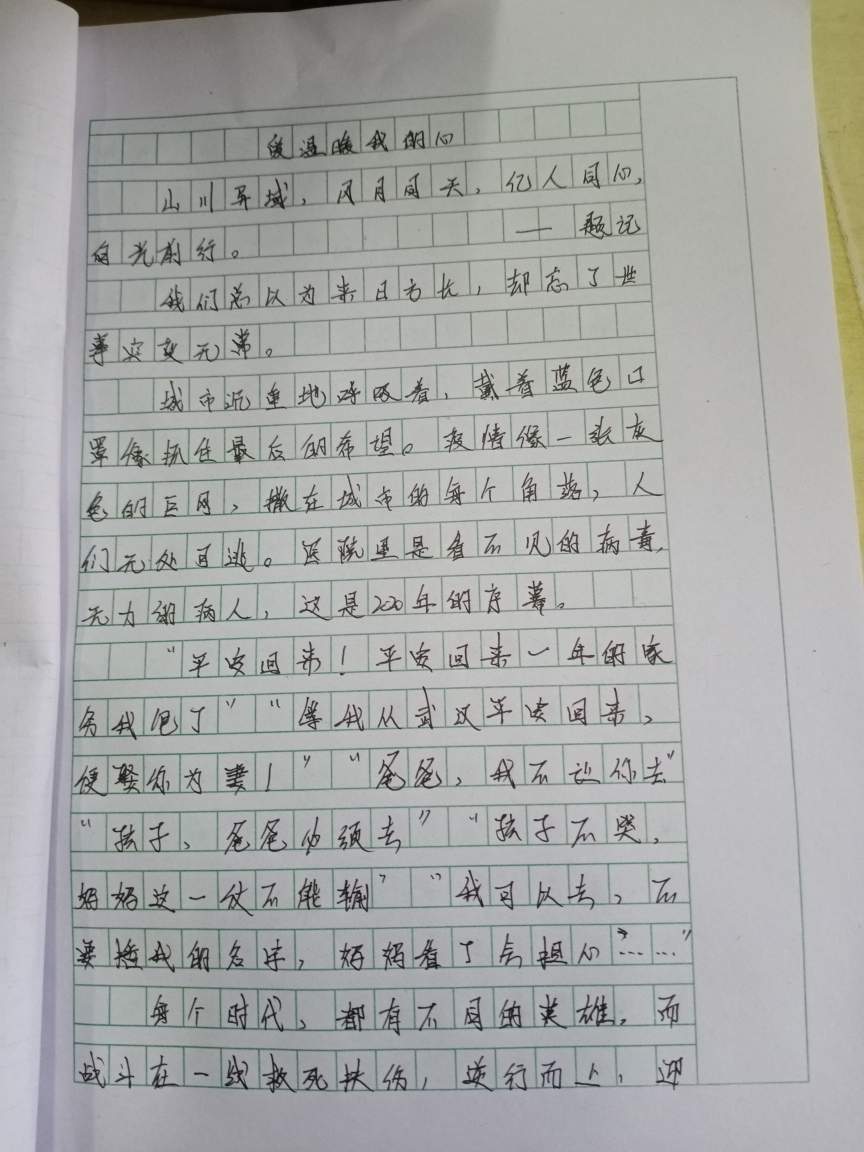 爱温暖我的心
山川异域，风月同天，亿人同心，
向光前行。——题记
我们总以为来日方长，却忘了世
事实变无常。
城市沉重地呼吸着，戴着蓝色口
罩像抓住最后的希望。疫情像一张灰
色的巨网，撒在城市的每个角落，人
们无处可逃。医院里是看不见的病毒，
无力的病人，这是2020年的序幕。
“平安回来！平安回来一年的家
务我包了”“等我从武汉平安回来，
便娶你为妻！”“爸爸，我不让你去”
“孩子、爸爸必须去”“孩子不哭，
妈妈这一仗不能输”“我可以去，不
要播我的名字，妈妈看了会担心……”
每个时代，都有不同的英雄，而
战斗在一线救死扶伤，逆行而上，迎